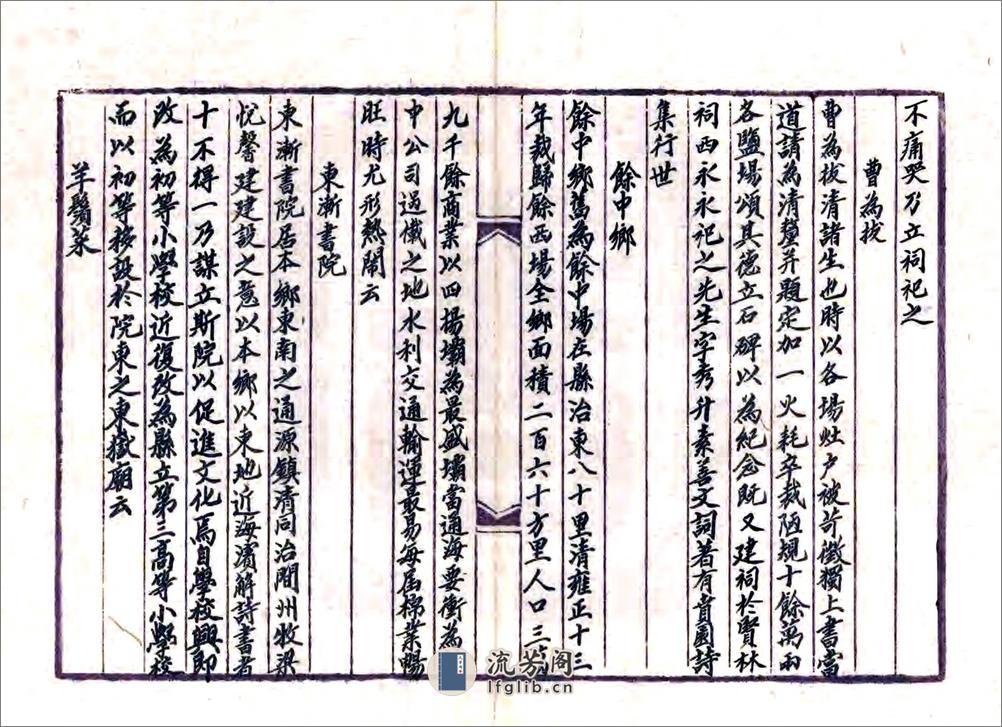 不痛哭乃立祠祀之
曹為拔
曹為拔清諸生也時以各場灶戶被苛徵獨上書當
道請為清釐并題定加一火耗卒裁陋規十餘萬兩
各鹽場頌其德立石碑以為紀念既又建祠於賢林
祠西永永祀之先生字秀升素善文詞著有賁園詩
集行世
餘中鄉
餘中鄉舊為餘中場在縣治東八十里清雍正十三
年裁歸餘西場全鄉面積二百六十方里人口三萬
九千餘商業以四揚壩為最盛壩當通海要衝為
中公司過儎之地水利交通輸運最易每屆棉業暢
旺時尤形熱鬧云
東漸書院
東漸書院居本鄉東南之通源鎮清同治間州牧梁
悅馨建建設之意以本鄉以東地近海濱解詩書者
十不得一乃謀立斯院以促進文化焉自學校興即
改為初等小學校近復改為縣立第三高等小學校
而以初等移設於院東之東嶽廟云
羊鬚菜
流芳阁
lfglib.cn